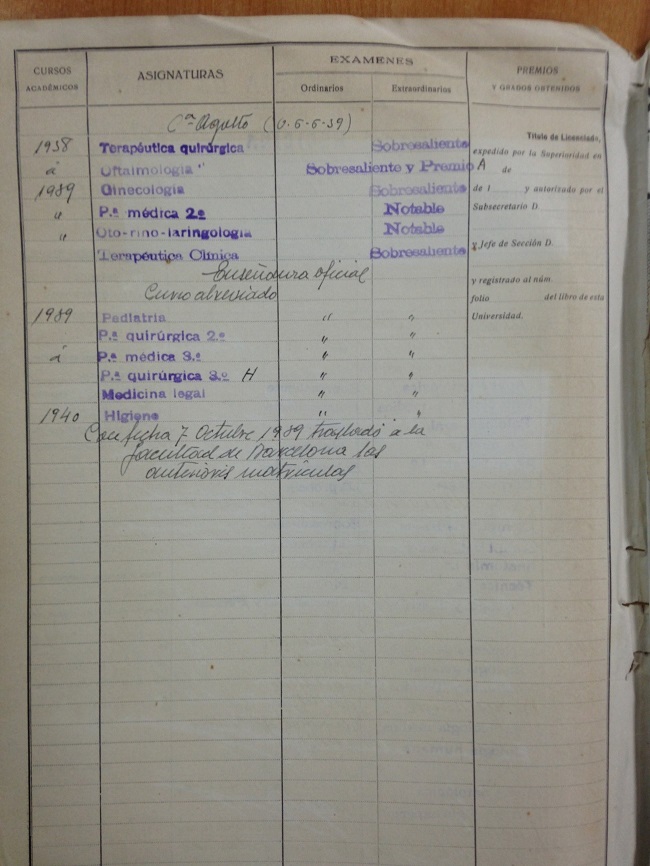 CURSOS ACADÉMICOS ASIGNATURAS EXAMENES Ordinarios Extraordinarios PREMIOS Y GRADOS OBTENIDOS
Cª Agosto (O. 6-6-39)
1938 Terapéutica quirúrgica Sobresaliente
á Oftalmologia " Sobresaliente y Premio A
1939 Ginecología Sobresaliente
" P.ª médica 2.º Notable
" Oto-rino-laringología Notable
Terapéutica Clínica Sobresaliente
Enseñanza oficial
Curso abreviado
1939 Pediatría " "
P.ª quirúrgica 2.º " "
á P.ª médica 3.º " "
P.ª quirúrgica 3.º H " "
Medicina legal " "
1940 Higiene " "
Con fecha 7 Octubre 1939 traslado a la
facultad de Barcelona las
anteriores matrículas
Título de Licenciado,
expedido por la Superioridad en
de
de 1 y autorizado por el
Subsecretario D.
y Jefe de Sección D.
y registrado al núm.
folio del libro de esta
Universidad.